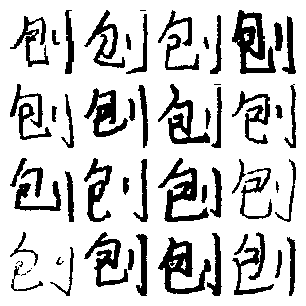 刨刨刨刨
刨刨刨刨
刨刨刨刨
刨刨刨刨